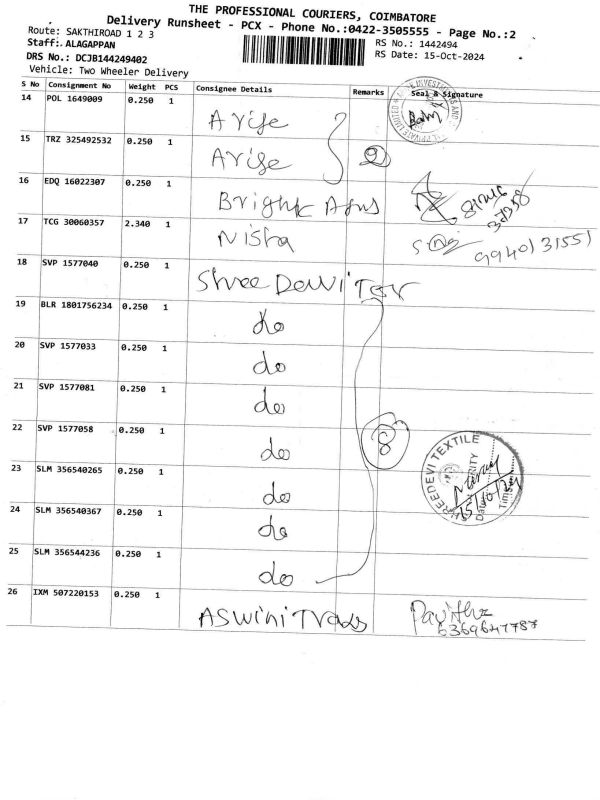 THE PROFESSIONAL COURIERS, COIMBATORE
Delivery Runsheet - PCX - Phone No.:0422-3505555 - Page No.:2
Route: SAKTHIROAD 1 2 3
Staff: ALAGAPPAN
RS No.: 1442494
DRS No.: DCJB144249402
RS Date: 15-Oct-2024
Vehicle: Two Wheeler Delivery
S No Consignment No Weight PCS Consignee Details Remarks Seal & Signature
14 POL 1649009 0.250 1 Arise
15 TRZ 325492532 0.250 1 Arise 2
16 EDQ 16022307 0.250 1 Bright
17 TCG 30060357 2.340 1 Nisha 9940131551
18 SVP 1577040 0.250 1 Shree Devi Tex
19 BLR 1801756234 0.250 1 do
20 SVP 1577033 0.250 1 do
21 SVP 1577081 0.250 1 do
22 SVP 1577058 0.250 1 do 8
SREEDEVI TEXTILE
23 SLM 356540265 0.250 1 do
24 SLM 356540367 0.250 1 do
25 SLM 356544236 0.250 1 do
26 IXM 507220153 0.250 1 Aswini Trads Pavithz
6369647787